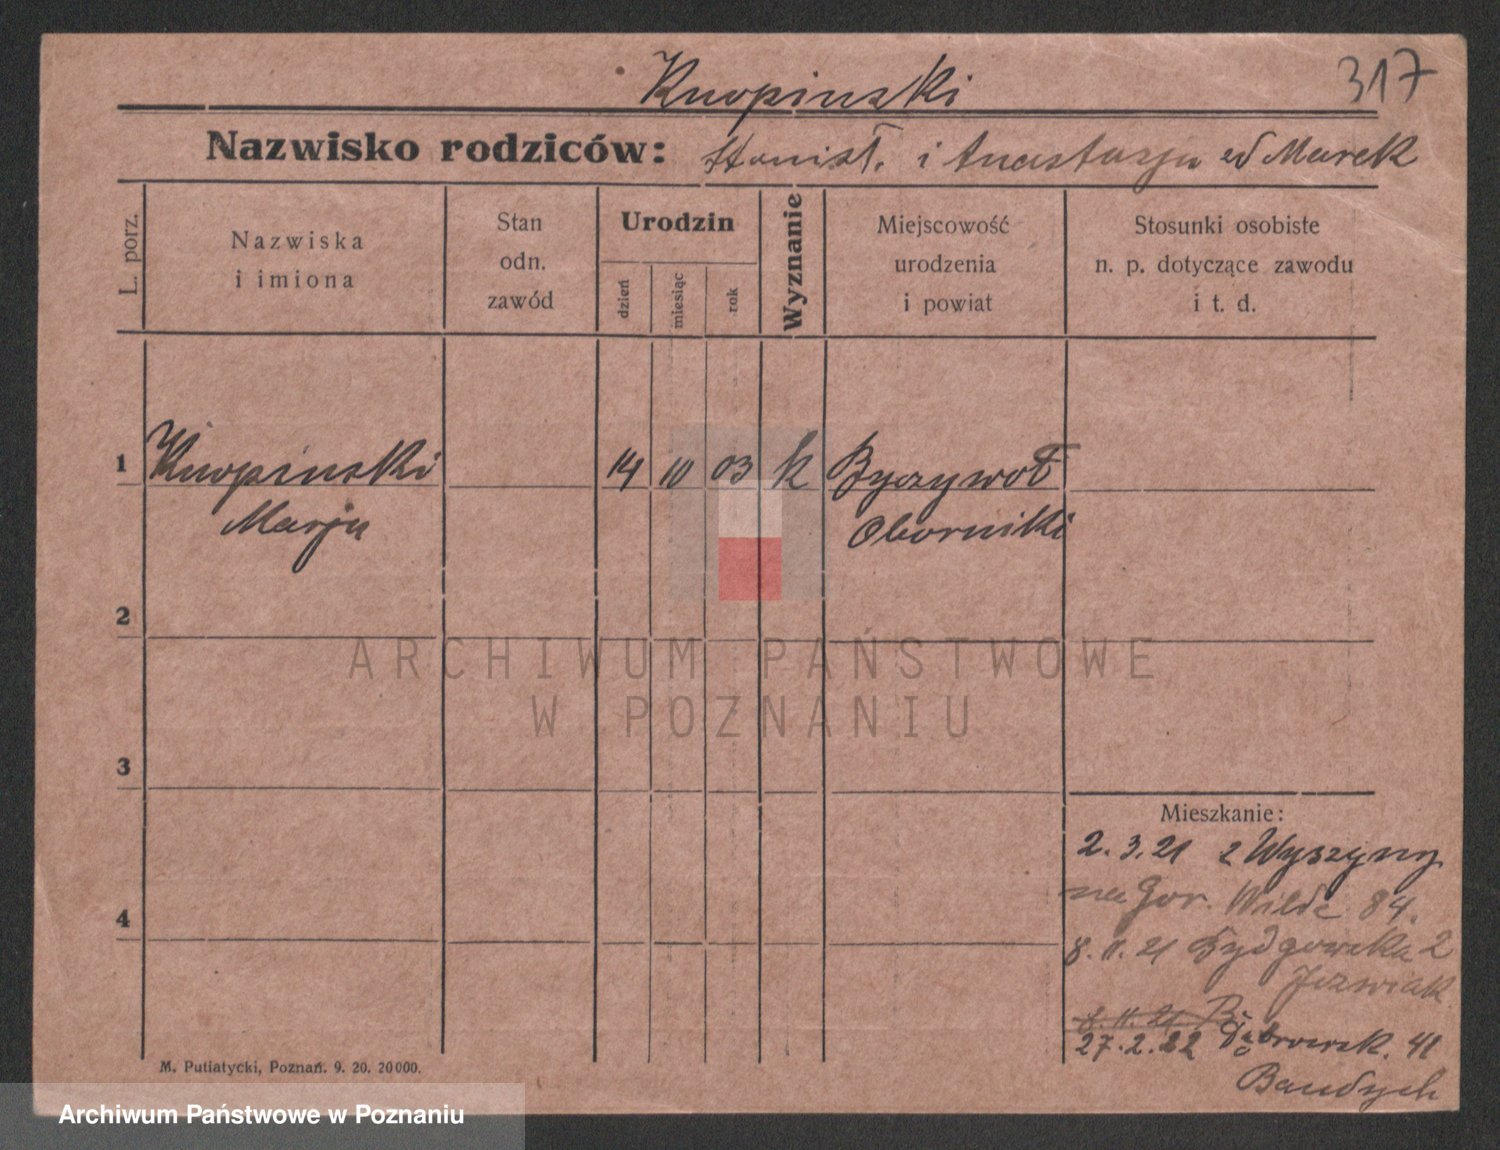 Knopinski 317
Nazwisko rodziców: Stanisł. i Anastazja Marek
L. porz.
Nazwiska
i imiona
Stan
odn.
zawód
Urodzin
dzień
miesiąc
rok
Wyznanie
Miejscowość
urodzenia
i powiat
Stosunki osobiste
n. p. dotyczące zawodu
i t. d.
1 Knopinski 14 10 03 k Byczywoł
Marja Oborniki
2
ARCHIWUM PAŃSTWOWE
W POZNANIU
3
Mieszkanie:
2.3.21 z Wyszyny
na Gór. Wilde 84.
4
8.11.21 Bydgowska 2
Jozwiak
8.11.21 B
27.2.22 Dąbrowsk. 41
Baudych
M. Putiatycki, Poznań. 9. 20. 20000.
Archiwum Państwowe w Poznaniu